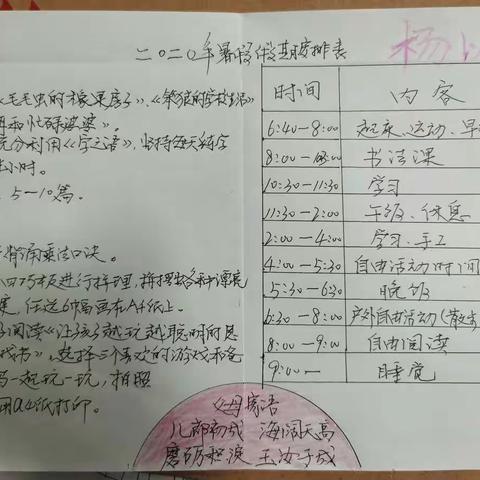 二〇二〇年暑假假期安排表
杨
《毛毛虫的
充分利用《字之语》,坚持每天练字
小时。
5—10篇。
背诵乘法口诀。
四巧板进行梳理,拼摆出各种漂亮
任选6幅画在A4纸上。
阅读《让孩子越玩越聪明的思
戏书》,选择三个喜欢的游戏和爸
一起玩一玩,拍照
用A4纸打印。
时间 内容
6:40—8:00 起床、运动、早
8:00—10:30 书法课
10:30—11:30 学习
11:30—2:00 午饭、休息
2:00—4:00 学习、手工
4:00—5:30 自由活动时间
5:30—6:30 晚饭
6:30—8:00 户外自由活动(散步
8:00—9:00 自由阅读
9:00— 睡觉
父母寄语
儿郎初成 海阔天高
磨砺积淀 玉汝于成